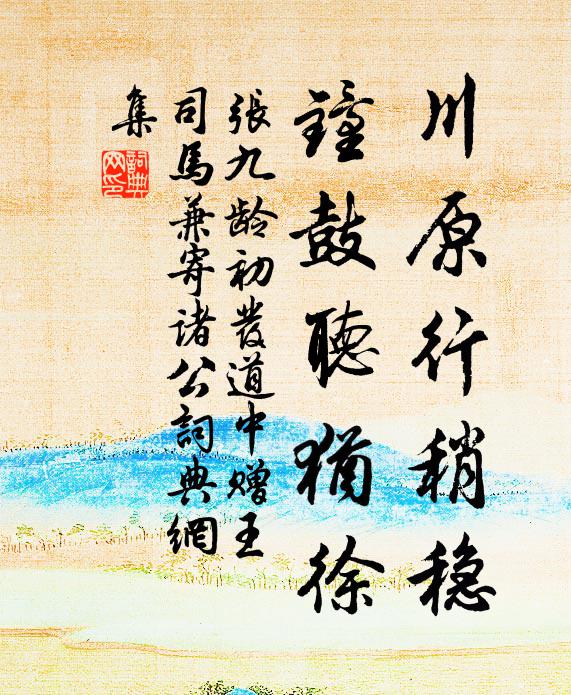 川原行稍稳
鐘鼓聽猶徐
張九龄初發道中贈王
司馬兼寄诸公詞典網
集
詞典
网印